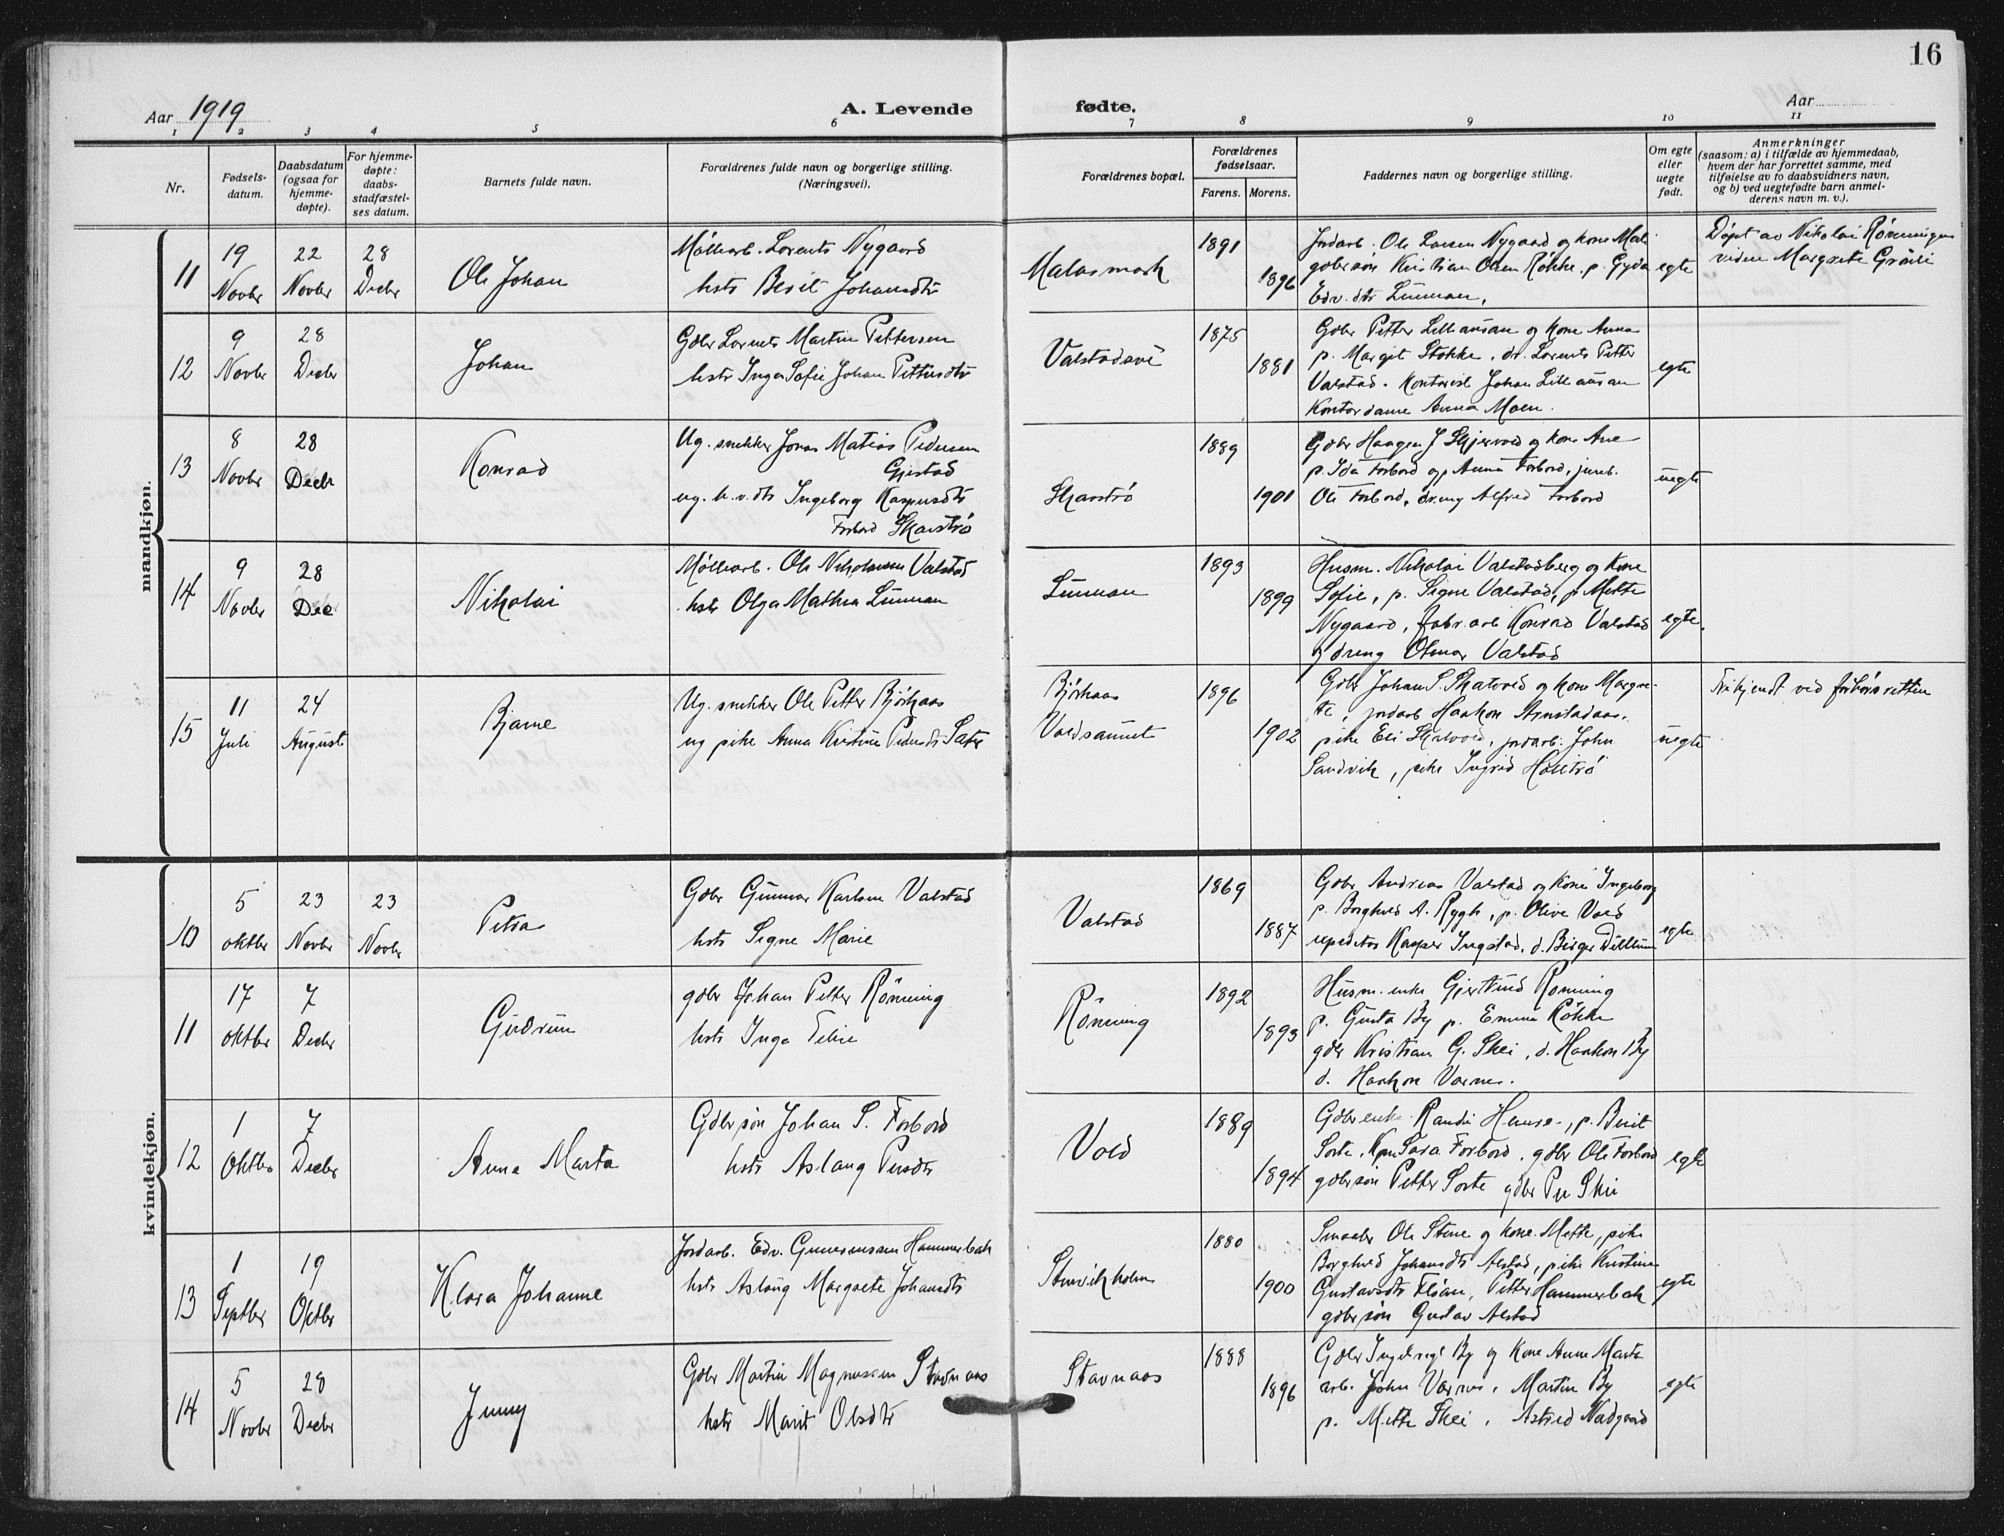 16
Aar 1919
A. Levende fødte.
Aar
1 2 3 4 5 6 7 8 9 10 11
Nr.
Fødsels-
datum.
Daabsdatum
(ogsaa for
hjemme-
døpte).
For hjemme-
døpte:
daabs-
stadfæstel-
ses datum.
Barnets fulde navn.
Forældrenes fulde navn og borgerlige stilling.
(Næringsvei).
Forældrenes bopæl.
Forældrenes
fødselsaar.
Farens. Morens.
Faddernes navn og borgerlige stilling.
Om egte
eller
uegte
født.
Anmerkninger
(saasom: a) i tilfælde av hjemmedaab,
hvem der har forrettet samme, med
tilføielse av to daabsvidners navn,
og b) ved uegtefødte barn anmel-
derens navn m. v.).
mandkjøn.
11
19
Novbr
22
Novbr
28
Decbr
Ole Johan
Møllearb. Lorents Nygaard
hstr Berit Johansdtr
Malasmark
1891
1896
Jordarb. Ole Larsen Nygaard og kone Mali
gdbrsøn Kristian Olsen Røkke. p. Gyda
Edv. dtr
egte
Døpt av Nikolai Rønningen
vidne Margrete
12
9
Novbr
28
Decbr
Johan
Gdbr Lornts Martin Pettersen
hstr Inga Sofie Johan Pettersdtr
1875
1881
Gdbr Petter Lillaunsan og kone Anna
p. Margit Stokke. dr. Lorents Petter
Valstad. Kontorist Johan Lillaunsan
Kontordame Anna Moen.
egte
13
8
Novbr
28
Decbr
Konrad
Ug. snekker Jonas Matias Pedersen
Gjestad
ug. h.v.dtr Ingeborg Kaspersdtr
Forbord Skarstrø
Skarstrø
1889
1901
Gdbr Haagen J Skjervold og kone Ane
p. Ida Forbord og p. Anna Forbord, jernb.
Ole Forbord, dreng Alfred Forbord
uegte
14
9
Novbr
28
Dec
Nikolai
Møllearb. Ole Nikolaisen Valstad
hstr Olga Mathea
1893
1899
Husm. Nikolai Valstadberg og Kone
Sofie, p. Signe Valstad, p. Mette
Nygaard, fabr.arb Konrad Valstad
og dreng Olmar Valstad
egte.
15
11
Juli
24
August
Bjarne
Ug. snekker Ole Petter Bjørkaas
ug pike Anna Kristine Pedersdtr Sæter
Bjørkaas
Voldsaunet
1896
1902
Gdbr Johan S. Skatvold og kone Margre-
te, jordarb Haakon Arnstadaas.
pike Eli Skatvold, jordarb. John
Sandvik, pike Ingrid
uegte
Frikjendt ved forhørsretten
kvindekjøn.
10
5
oktbr
23
Novbr
23
Novbr
Petra
Gdbr Gunnar Karlsen Valstad
hstr Signe Marie
Valstad
1869
1887
Gdbr Andreas Valstad og Kone Ingeborg
p. Borghild A. Rygh, p. Olive Vold
repetitør Kasper Ingstad. d. Birger
egte
11
17
oktbr
7
Decbr
Gudrun
gdbr Johan Petter Rønning
hstr Inga
Rønning
1892
1893
Husm. enke Gjertrud Rønning
p. Gusta By p. Emma Røkke
gdbr Kristian G. Skei, d. Haakon By
d. Haakon Værnes.
12
1
Oktbr
7
Decbr
Anna Marta
Gdbrsøn Johan S. Forbord
hstr Aslaug Persdtr
Vold
1889
1894
Gdbrenke Randi, p. Berit
Sorte. Kpm Sara Forbord. gdbr Ole Forbord
gdbrsøn Petter Sorte gdbr Per Skei
egte
13
1
Septbr
19
Oktbr
Klara Johanne
Jordarb. Edv. Gunersensen Hammerbak
hstr Aslaug Margrete Johansdtr
Stenvikholm
1880
1900
Smaabr Ole Stene og kone Mette, pike
Borghild Johansdtr Alstad, pike Kristine
Gustavsdtr Fløan, Petter Hammerbak
gdbrsøn Gustav Alstad
egte
14
5
Novbr
28
Decbr
Jenny
Gdbr Martin Magnussen Stavnaas
hstr Marit Olsdtr
Stavnaas
1888
1896
Gdbr By og Kone Anne Marta
arb. John Værnes, Martin By
p. Mette Skei, Astrid
egte